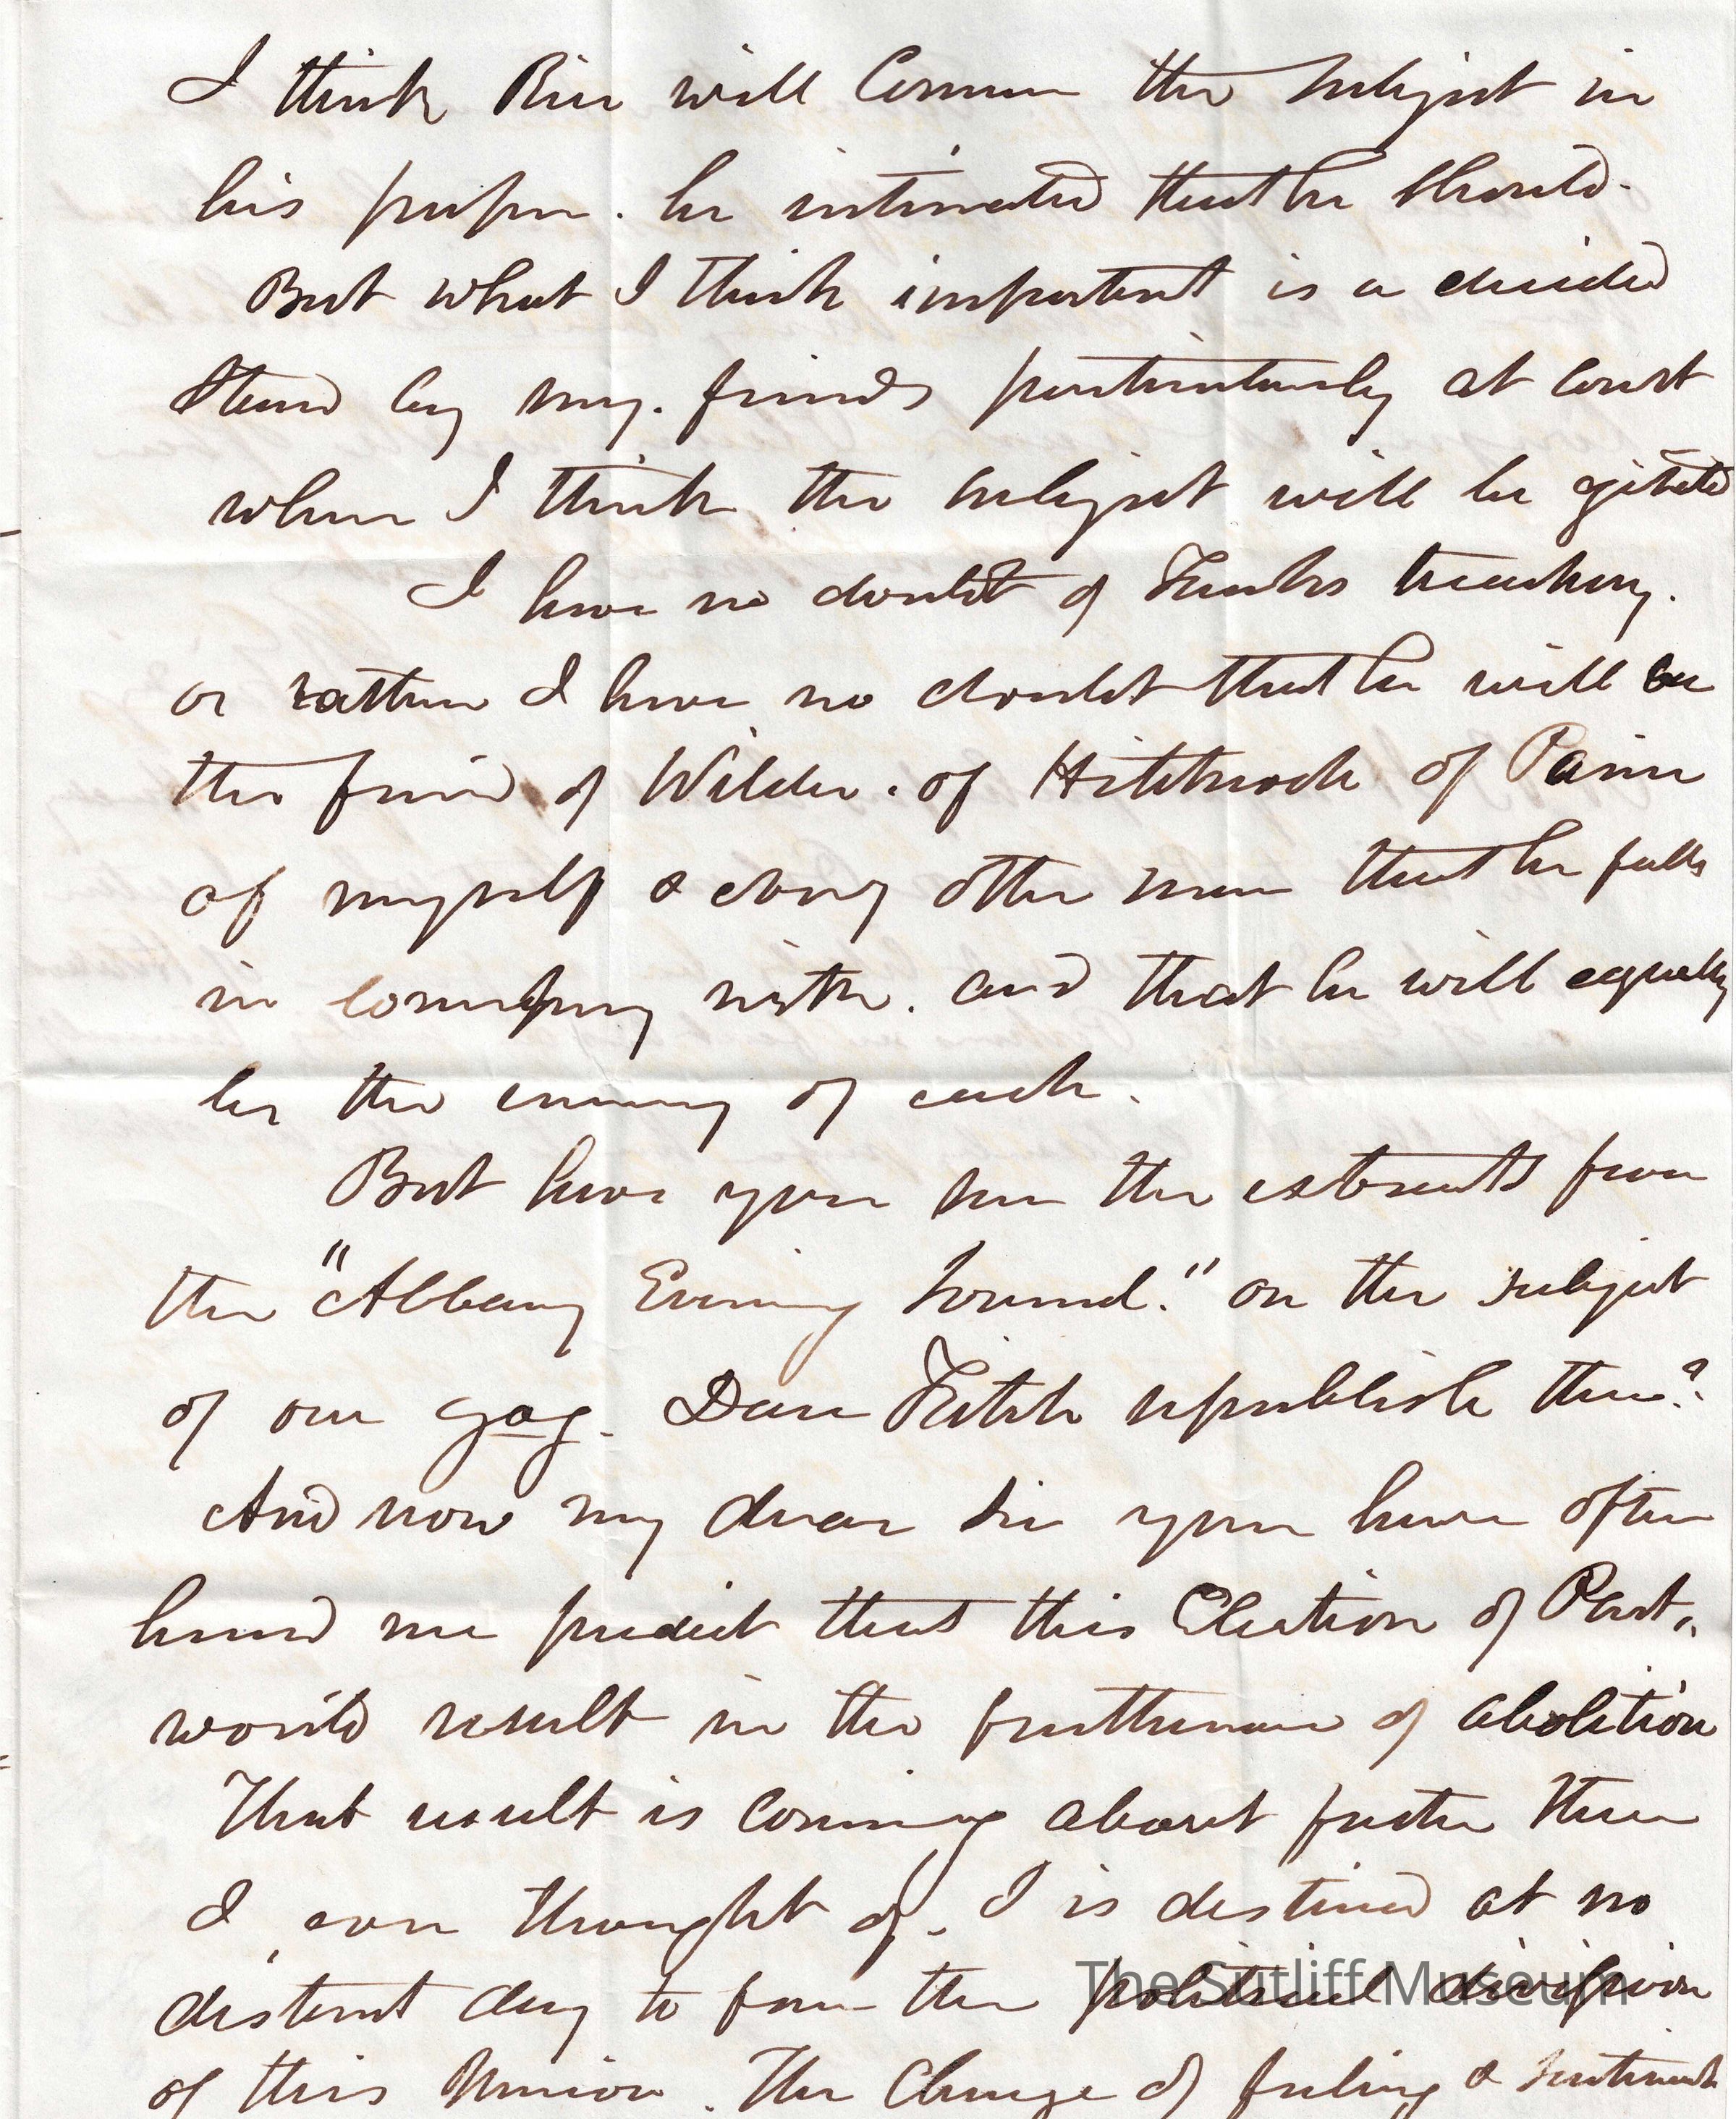 I think Rice will Commence the subject in
his paper. he intimated that he should.
But what I think important is a decided
Stand by my. friends particularly at Court
where I think the subject will be agitated
I have no doubt of treachery.
or rather I have no doubt that he will be
the friend of Wilder. of Hitchcock of Paine
of myself & every other man that he falls
in company with. and that he will equally
be the enemy of each.
But have you seen the extracts from
the "Albany Evening Journal." on the subject
of our gag. Dare Fitch republish them?
And now my dear Sir you have often
heard me predict that this Election of Past.
would result in the furtherance of abolition
That result is coming about faster than
I ever thought of. I is destined at no
distant day to form the political division
of this Union. The Change of feeling & sentiment
The Sutliff Museum